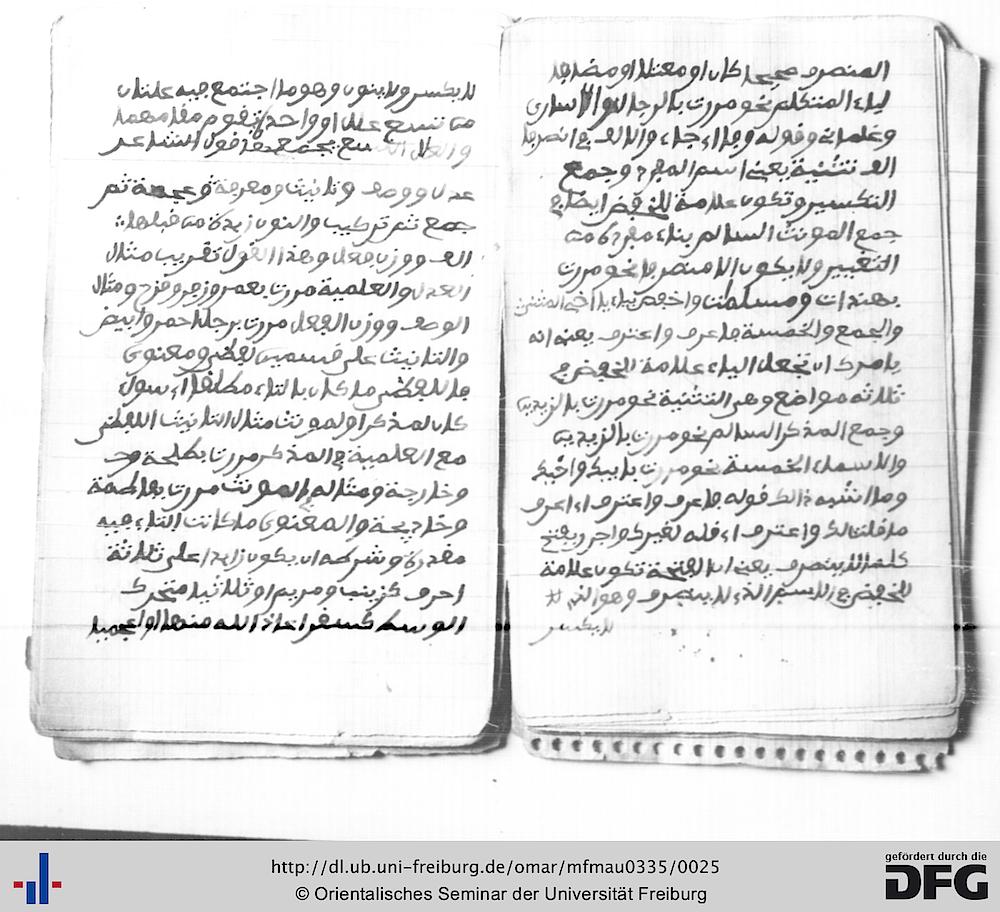 المنصرف صحيحا كان او معتلا او مضافا
لياء المتكلم نحو مررت بالرجل
وغلماني وقوله وجاء والالف في انصرفا
الف تثنية يعني اسم المفرد وجمع
التكسير وتكون علامة للخفض ايضا في
جمع المونث السالم بناء مفرده من
التغيير ولا يكون الا منصرفا نحو مررت
بهندات ومسلمات واخفض بياء يا اخي المثنى
والجمع والخمسة فاعرف واعترف يعني انه
يامرك ان تجعل الياء علامة للخفض في
ثلاثه مواضع وهي التثنية نحو مررت بالزيدين
وجمع المذكر السالم نحو مررت بالزيدين
والاسماء الخمسة نحو مررت بابيك واخيك
وما اشبه ذالك قوله فاعرف واعترف اي اعرف
ما قلنا لك واعترف اي قله لغيرك واجرر بفتح
كلما لا ينصرف يعني ان الفتحة تكون علامة
للخفض في الاسم الذي لا ينصرف وهو الذي لا
لا يكسر
لا يكسر ولا ينون وهو ما اجتمع فيه علتان
من تسع علل او واحدة تقوم مقامهما
والعلل التسع يجمعها قول الشاعر
عدل ووصف وتانيث ومعرفة وعجمة ثم
جمع ثم تركيب والنون زيدة من قبلها
الف ووزن فعل وهذا القول تقريب مثال
العدل والعلمية مررت بعمر وزفر وقزح ومثال
الوصف ووزن الفعل مررت برجل احمر وابيض
والتانيث على قسمين لفظي ومعنوي
فاللفظي ما كان بالتاء مطلقا اي سواء
كان لمذكر او لمونث مثال التانيث اللفظي
مع العلمية في المذكر مررت بطلحة
وخارجة ومثاله في المونث مررت بفاطمة
وخديجة والمعنوي ما كانت التاء فيه
مقدرة وشرطه ان يكون زايدا على ثلاثة
احرف كزينب ومريم او ثلاثيا متحرك
الوسط كسقر اعاذنا الله منها او اعجميا
http://dl.ub.uni-freiburg.de/omar/mfmau0335/0025
© Orientalisches Seminar der Universität Freiburg
gefördert durch die
DFG